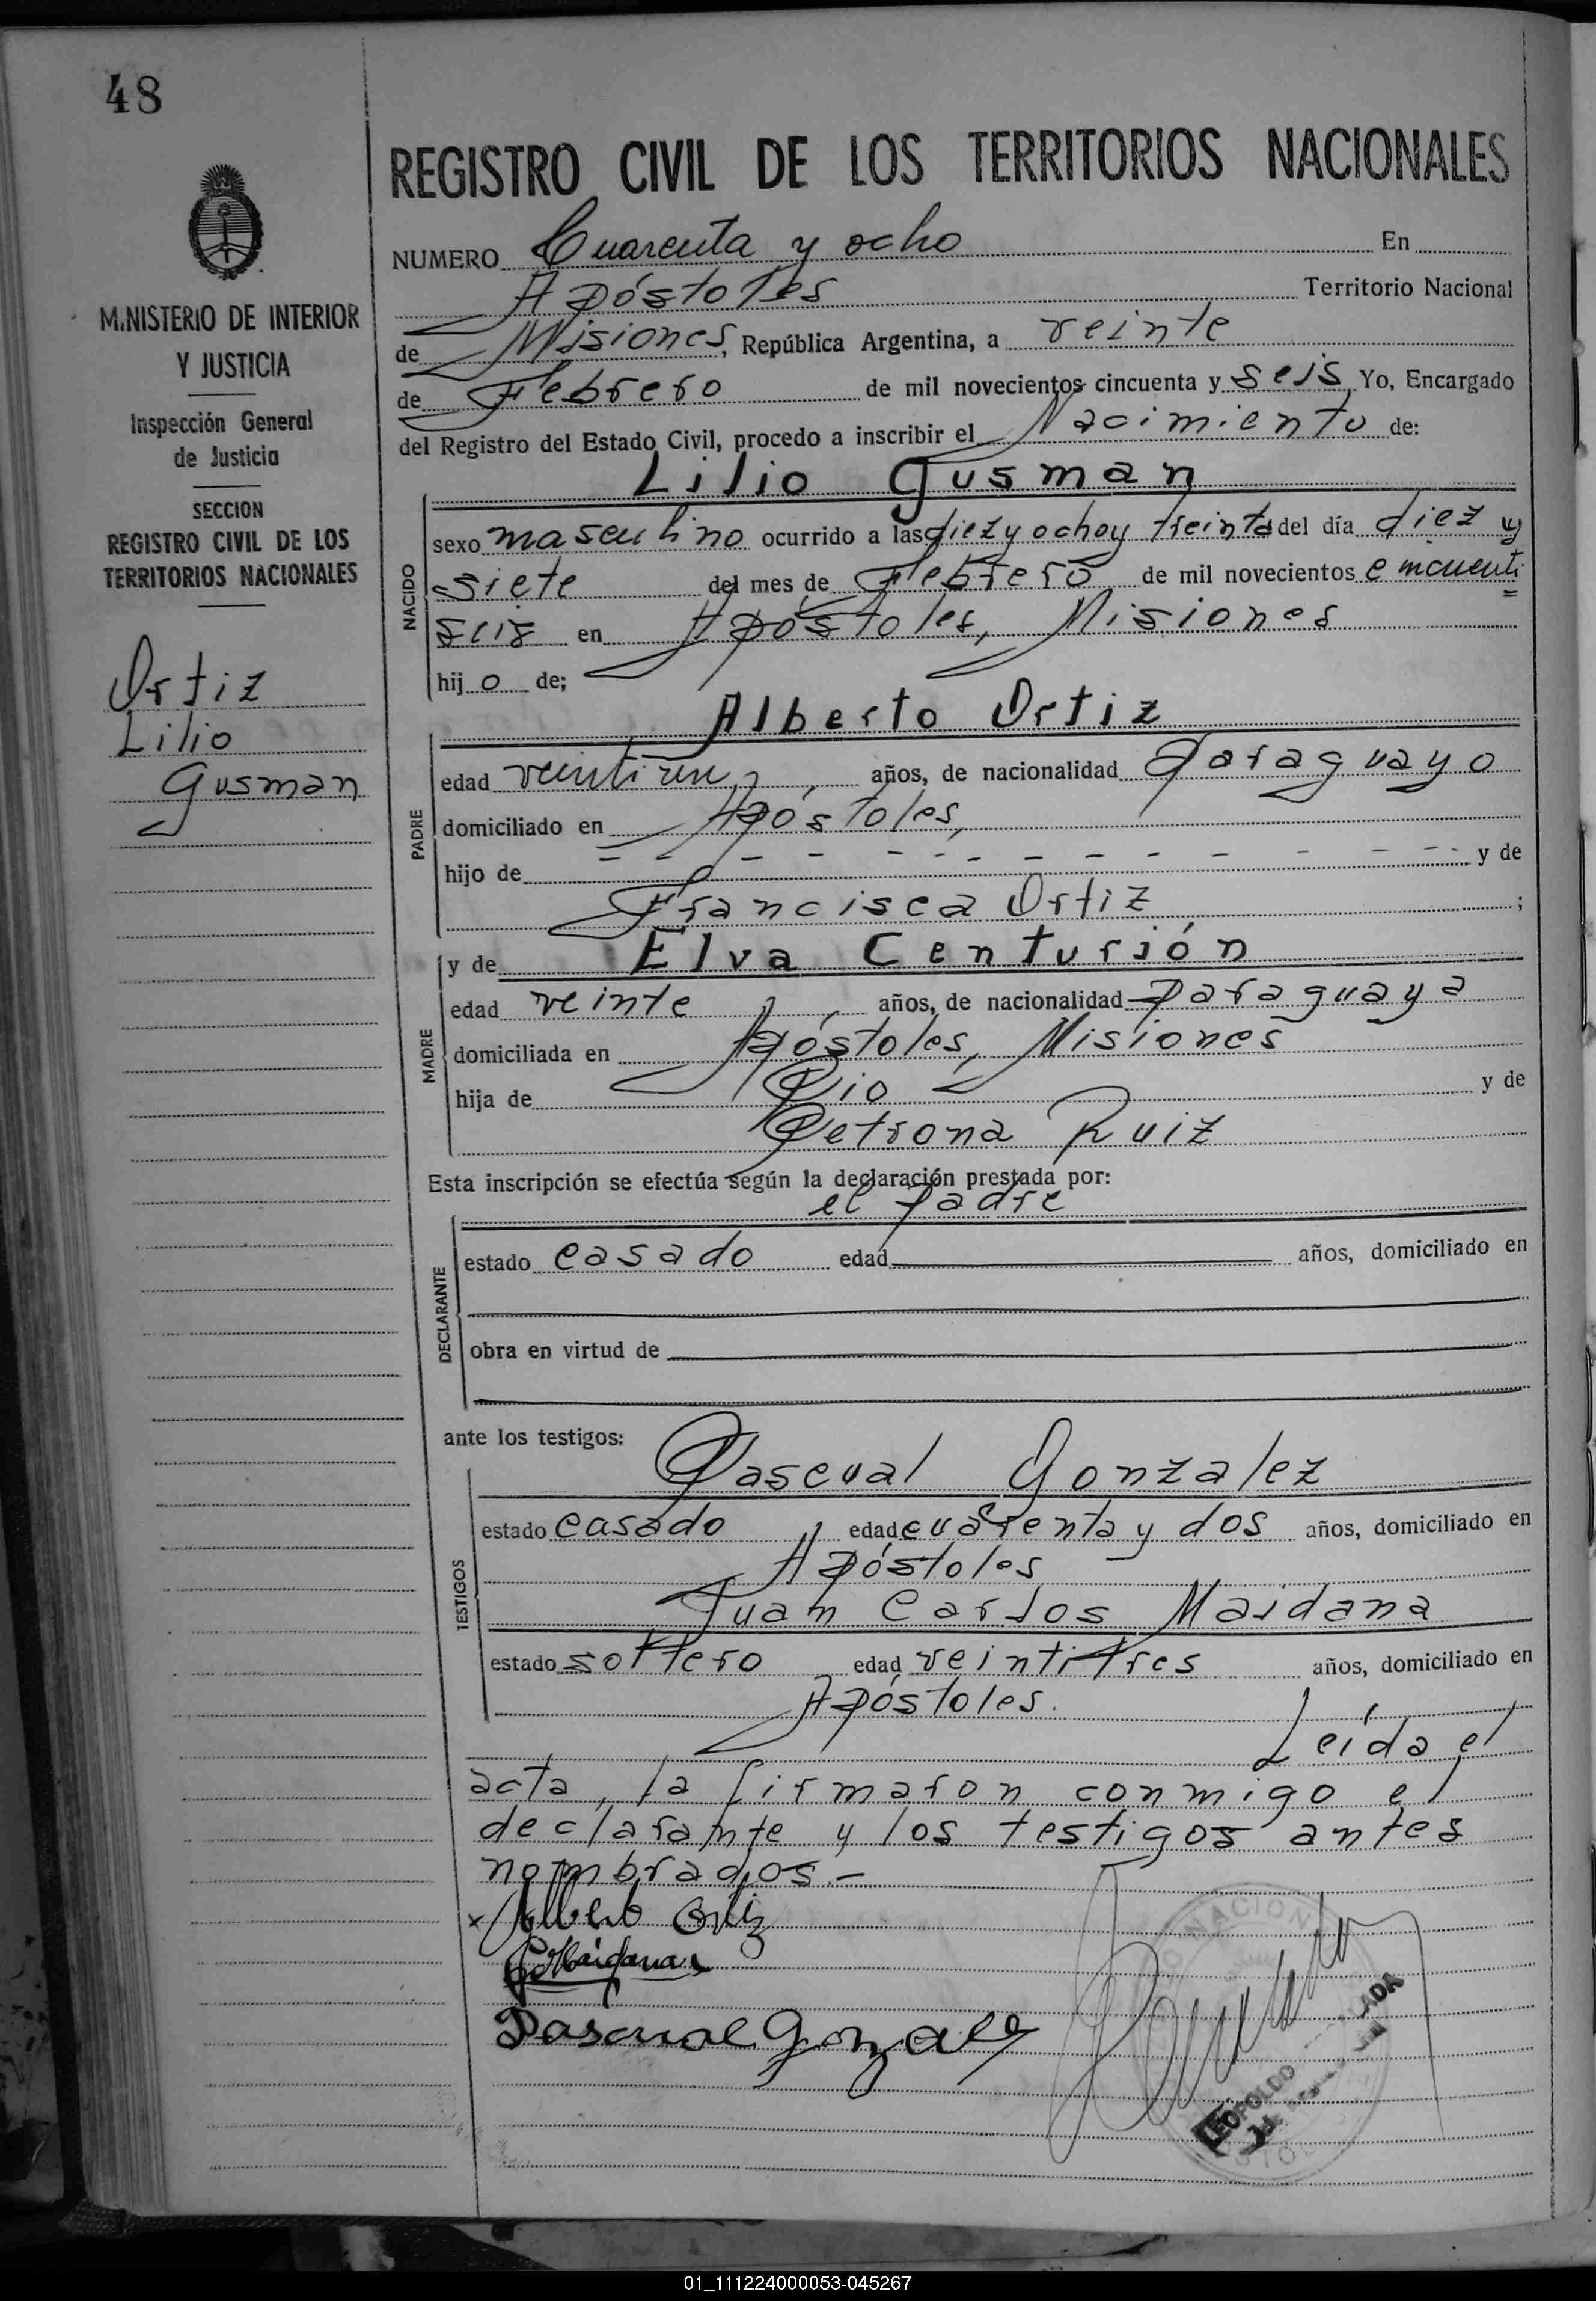 48
REGISTRO CIVIL DE LOS TERRITORIOS NACIONALES
MINISTERIO DE INTERIOR
Y JUSTICIA
Inspección General
de Justicia
SECCION
REGISTRO CIVIL DE LOS
TERRITORIOS NACIONALES
Ortiz
Lilio
Gusman
NUMERO Cuarenta y ocho En
Apóstoles Territorio Nacional
de Misiones, República Argentina, a veinte
de Febrero de mil novecientos cincuenta y seis Yo, Encargado
del Registro del Estado Civil, procedo a inscribir el Nacimiento de:
Lilio Gusman
NACIDO
sexo masculino ocurrido a las diez y ocho y treinta del día diez y
siete del mes de Febrero de mil novecientos cincuenti
seis en Apóstoles, Misiones
hijo de;
Alberto Ortiz
PADRE
edad años, de nacionalidad Paraguayo
domiciliado en Apóstoles,
hijo de - - - - - - - - - - - - - y de
Francisca Ortiz ;
y de Elva Centurión
MADRE
edad veinte años, de nacionalidad Paraguaya
domiciliada en Apóstoles, Misiones
hija de Pio y de
Petrona Ruiz
Esta inscripción se efectúa según la declaración prestada por:
el padre
DECLARANTE
estado casado edad años, domiciliado en
obra en virtud de
ante los testigos:
Pascual Gonzalez
TESTIGOS
estado casado edad cuarenta y dos años, domiciliado en
Apóstoles
Juan Carlos Maidana
estado soltero edad veintitres años, domiciliado en
Apóstoles.
Leída el
acta, la firmaron conmigo el
declarante y los testigos antes
nombrados.-
x Alberto Ortiz
Maidana
Pascual Gonzalez
LEOPOLDO
01_111224000053-045267